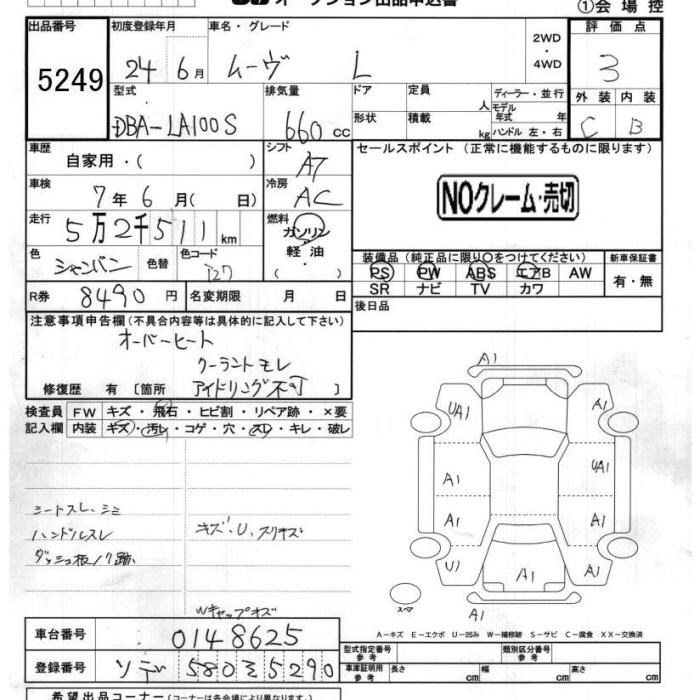 オークション出品申込書
①会場控
出品番号
5249
初度登録年月
24 6月
車名・グレード
ムーヴ L
2WD
・
4WD
評価点
3
型式
DBA-LA100S
排気量
660 cc
ドア
定員
人
ディーラー・並行
モデル年式 年
形状
積載
kg
ハンドル 左・右
外装
内装
C
B
車歴
自家用・( )
シフト
AT
車検
7年6月( 日)
冷房
AC
走行
5万2千511km
燃料
ガソリン
・
軽油
色
シャンパン
色替
色コード
T27
R券
8490円
名変期限 月 日
セールスポイント(正常に機能するものに限ります)
NOクレーム・売切
装備品(純正品に限り〇をつけてください)
PS PW ABS エアB AW
SR ナビ TV カワ
新車保証書
有・無
後日品
注意事項申告欄(不具合内容等は具体的に記入して下さい)
オーバーヒート
クーラントモレ
アイドリング不可
修復歴 有 [箇所 ]
検査員
記入欄
FW キズ・飛石・ヒビ割・リペア跡・×要
内装 キズ・汚レ・コゲ・穴・スレ・キレ・破レ
シートスレ、シミ
ハンドルスレ
ダッシュ板ノリ跡
キズ・U、スリキズ
Wキャップキズ
A1
UA1
A1
A1
UA1
A1
A1
U1
A1
A1
A1
スペア
A-キズ E-エクボ U-凹み W-補修跡 S-サビ C-腐食 XX-交換済
車台番号
0148625
登録番号
580 5290
型式指定番号
参考
類別区分番号
参考
車庫証明用
参考
長さ cm
幅 cm
高さ cm
希望出品コーナー(コーナーは各会場により異なります。)